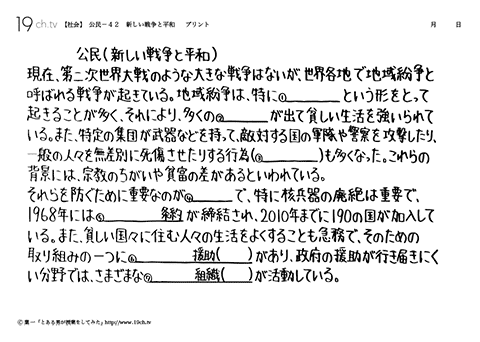 19ch.tv 【社会】 公民-42 新しい戦争と平和 プリント 月 日
公民(新しい戦争と平和)
現在、第二次世界大戦のような大きな戦争はないが、世界各地で地域紛争と
呼ばれる戦争が起きている。地域紛争は、特に①________という形をとって
起きることが多く、それにより、多くの②________が出て貧しい生活を強いられて
いる。また、特定の集団が武器などを持って、敵対する国の軍隊や警察を攻撃したり、
一般の人々を無差別に死傷させたりする行為(③________)も多くなった。これらの
背景には、宗教のちがいや貧富の差があるといわれている。
それらを防ぐために重要なのが④______で、特に核兵器の廃絶は重要で、
1968年には⑤________条約が締結され、2010年までに190の国が加入して
いる。また、貧しい国々に住む人々の生活をよくすることも急務で、そのための
取り組みの一つに⑥________援助( )があり、政府の援助が行き届きにく
い分野では、さまざまな⑦________組織( )が活動している。
© 葉一「とある男が授業をしてみた」http://www.19ch.tv